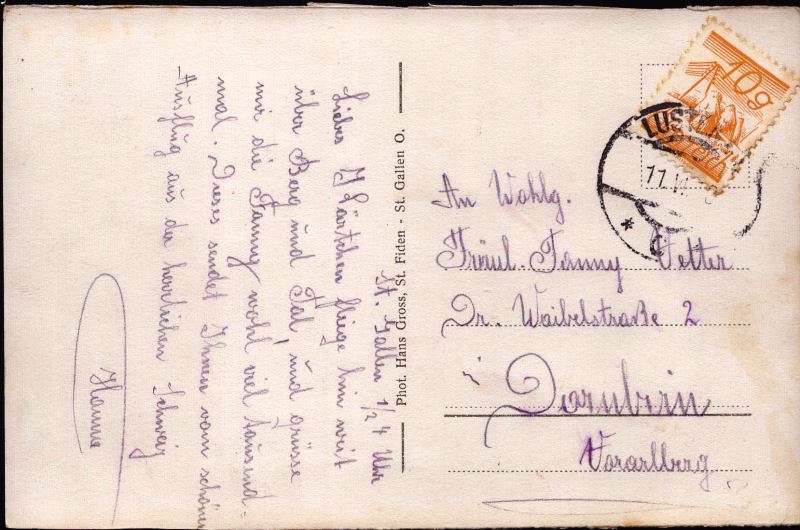 St. Gallen 1/2 4 Uhr
Liebes Kärtchen fliege hin weit
über Berg und Tal, und grüsse
mir die Fanny wohl viel tausend=
mal. Dieses sendet Ihnen vom schönen
Ausflug aus der herrlichen Schweiz
Hanna
Phot. Hans Gross, St. Fiden - St. Gallen O.
10g
LUST
11.V
*
An Wohlg.
Fräul. Fanny Vetter
Dr. Waibelstraße 2
Dornbirn
Vorarlberg